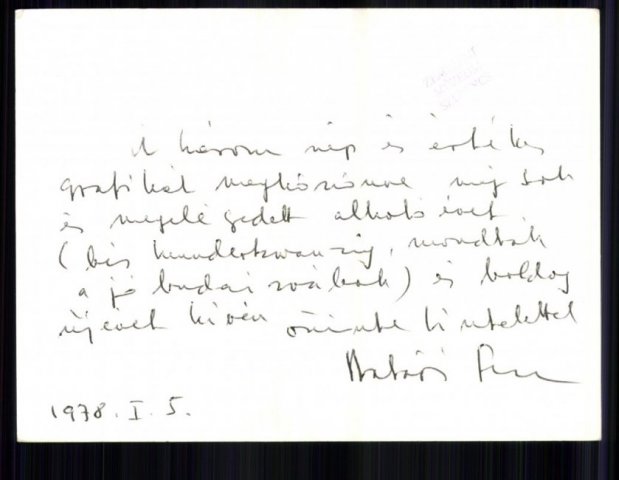 A három szép és értékes
grafikát megköszönve még sok
és megelégedett alkotó évet
(bis hundertzwanzig, mondták
a jó budai svábok) és boldog
újévet kíván őszinte tisztelettel
1978. I. 5.